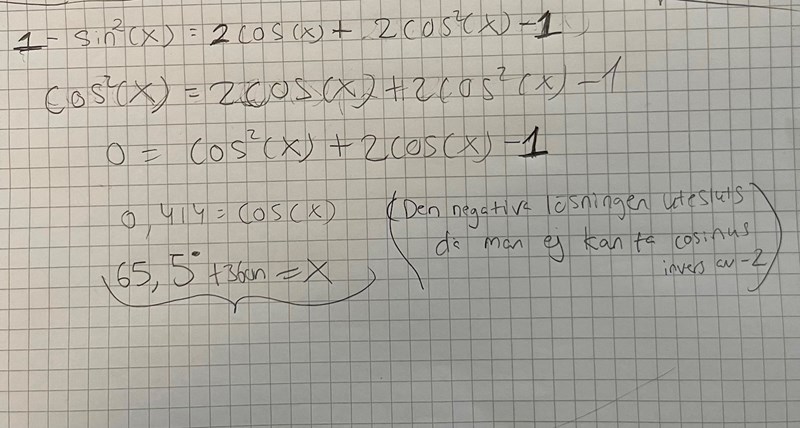 1 - sin²(x) = 2cos(x) + 2cos²(x) - 1
cos²(x) = 2cos(x) + 2cos²(x) - 1
0 = cos²(x) + 2cos(x) - 1
0,414 = cos(x) (Den negativa lösningen utesluts
då man ej kan ta cosinus
invers av -2)
65,5° + 360n = x